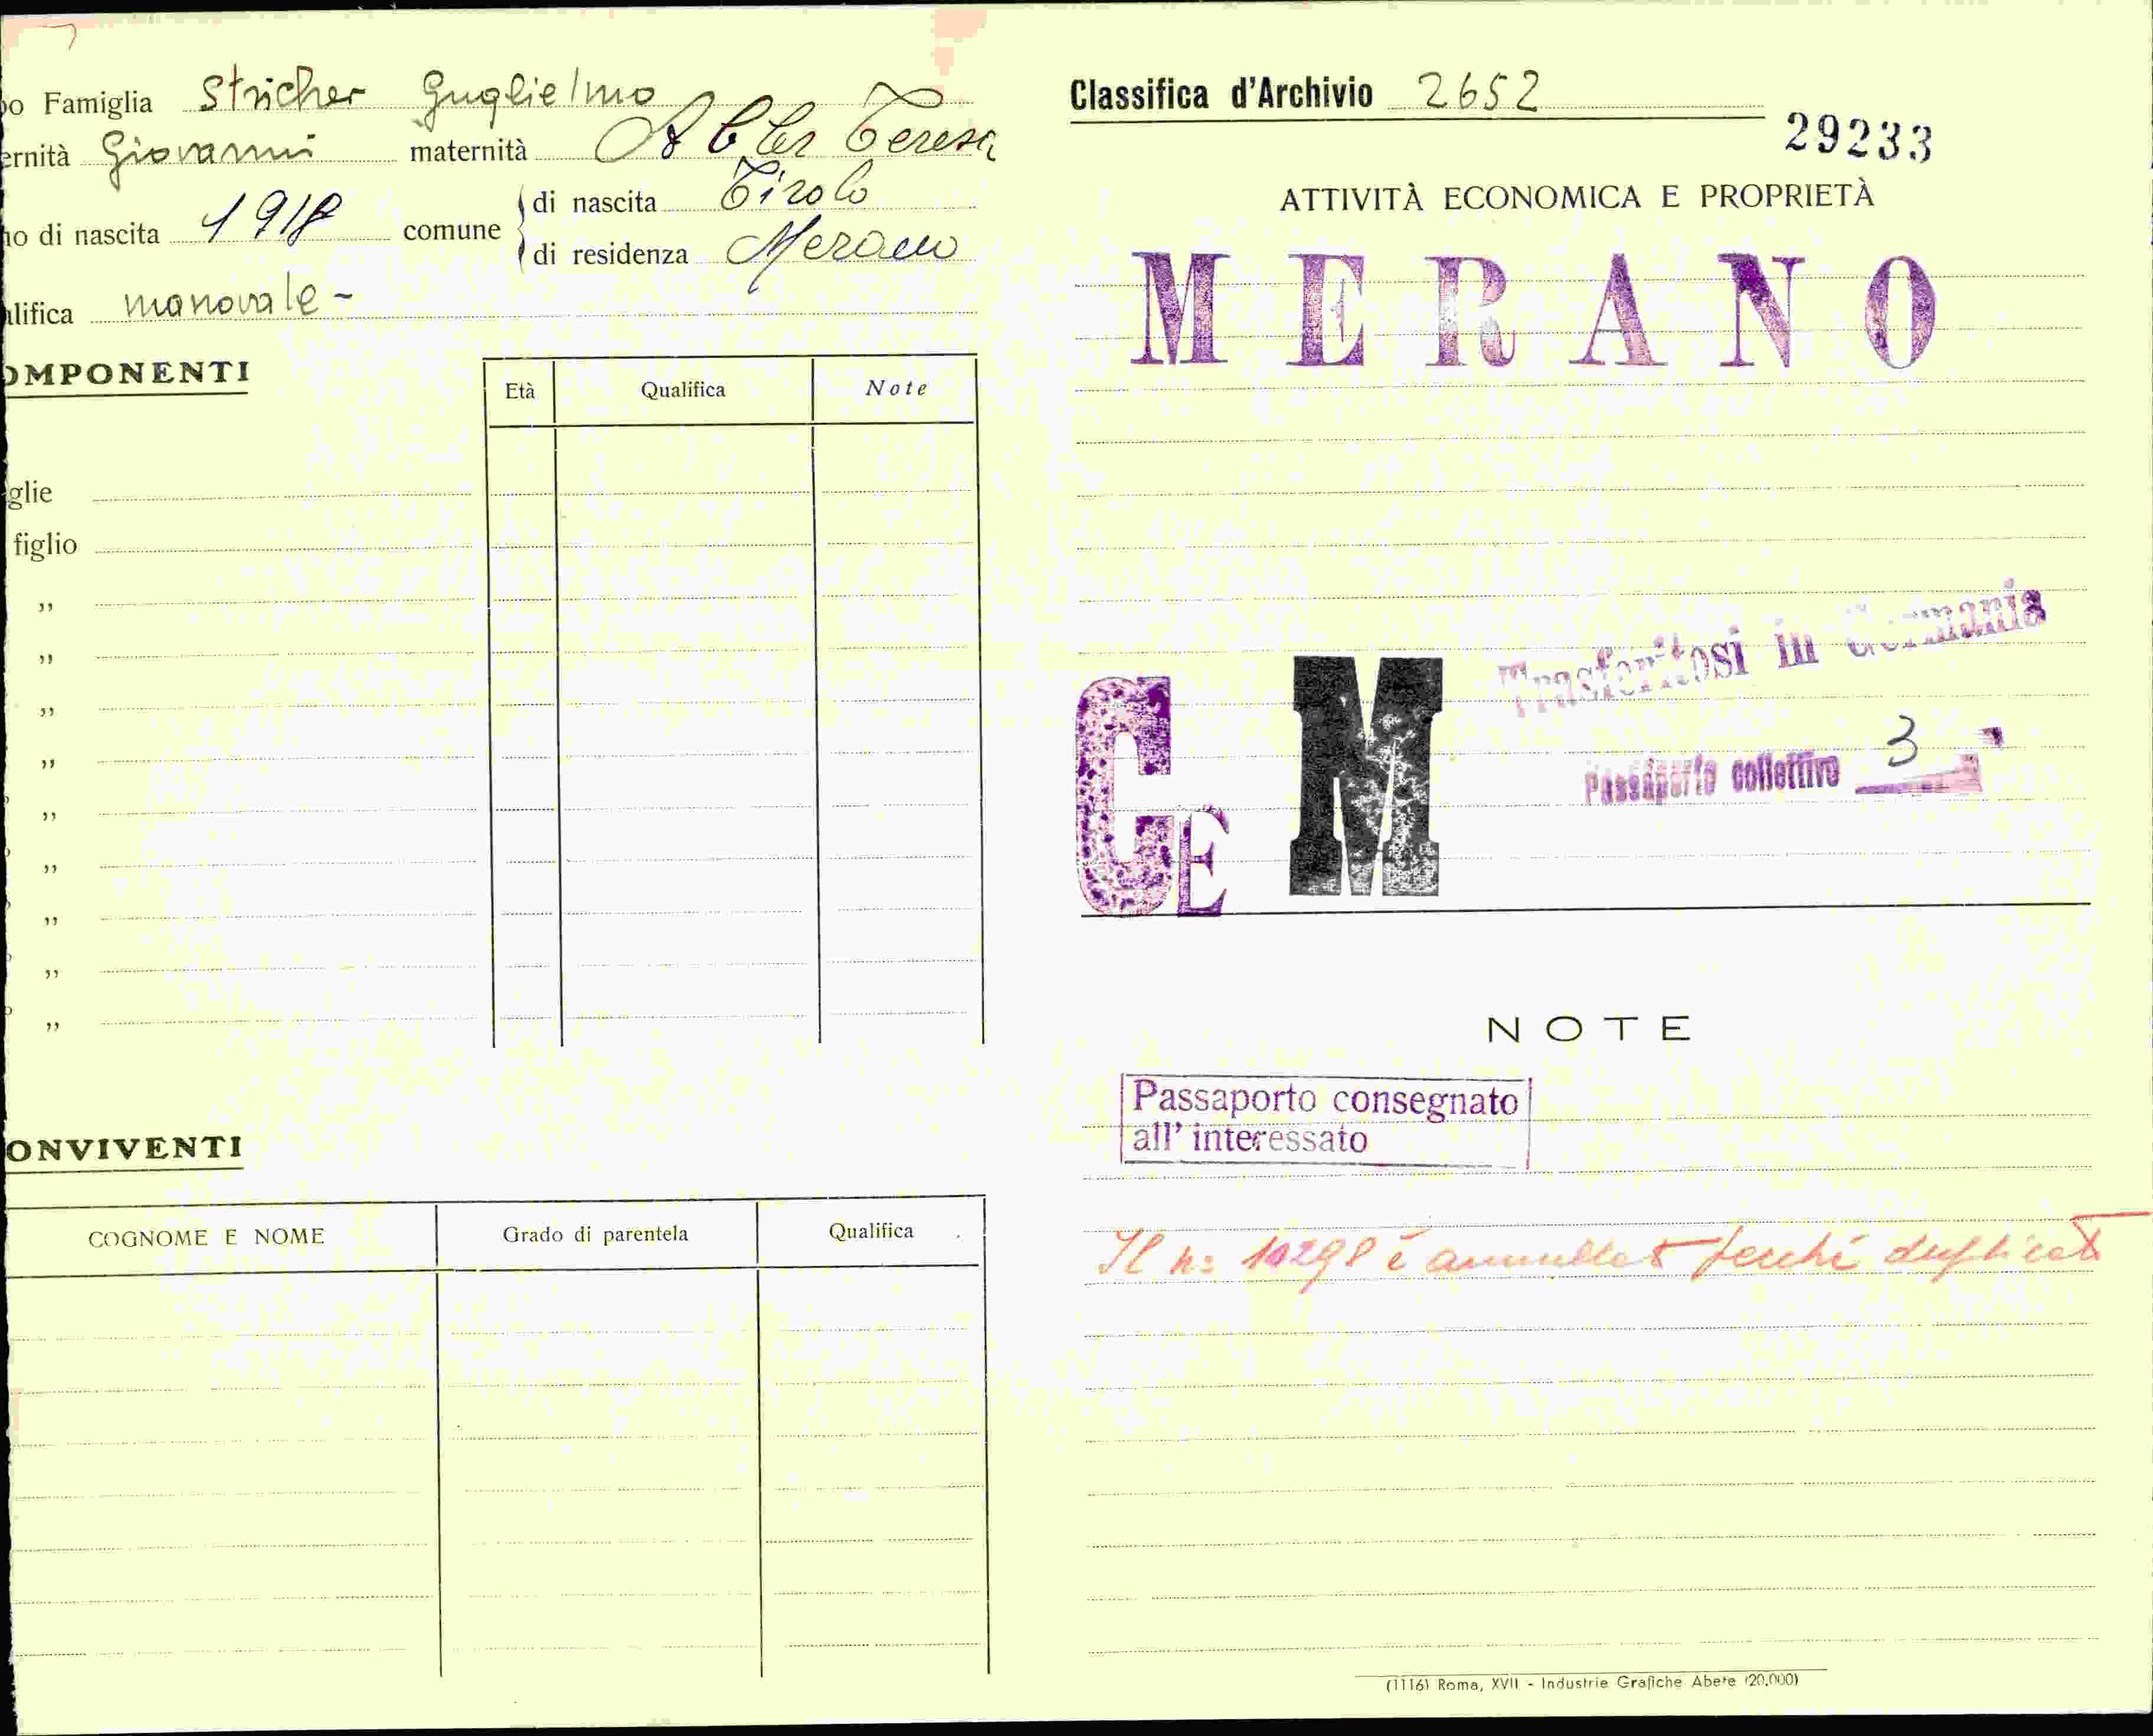 o Famiglia Stricher Guglielmo
ernità Giovanni maternità Abler Teresa
no di nascita 1918 comune di nascita Tirolo
di residenza Merano
alifica manovale -
OMPONENTI
Età Qualifica Note
glie
figlio
”
”
”
”
”
”
”
”
”
ONVIVENTI
COGNOME E NOME Grado di parentela Qualifica
Classifica d'Archivio 2652
29233
ATTIVITÀ ECONOMICA E PROPRIETÀ
MERANO
Trasferitosi in Germania
GE M
Passaporto collettivo 3
NOTE
Passaporto consegnato
all' interessato
Il n: 10298 è annullato perchè duplicato
(1116) Roma, XVII - Industrie Grafiche Abete (20.000)